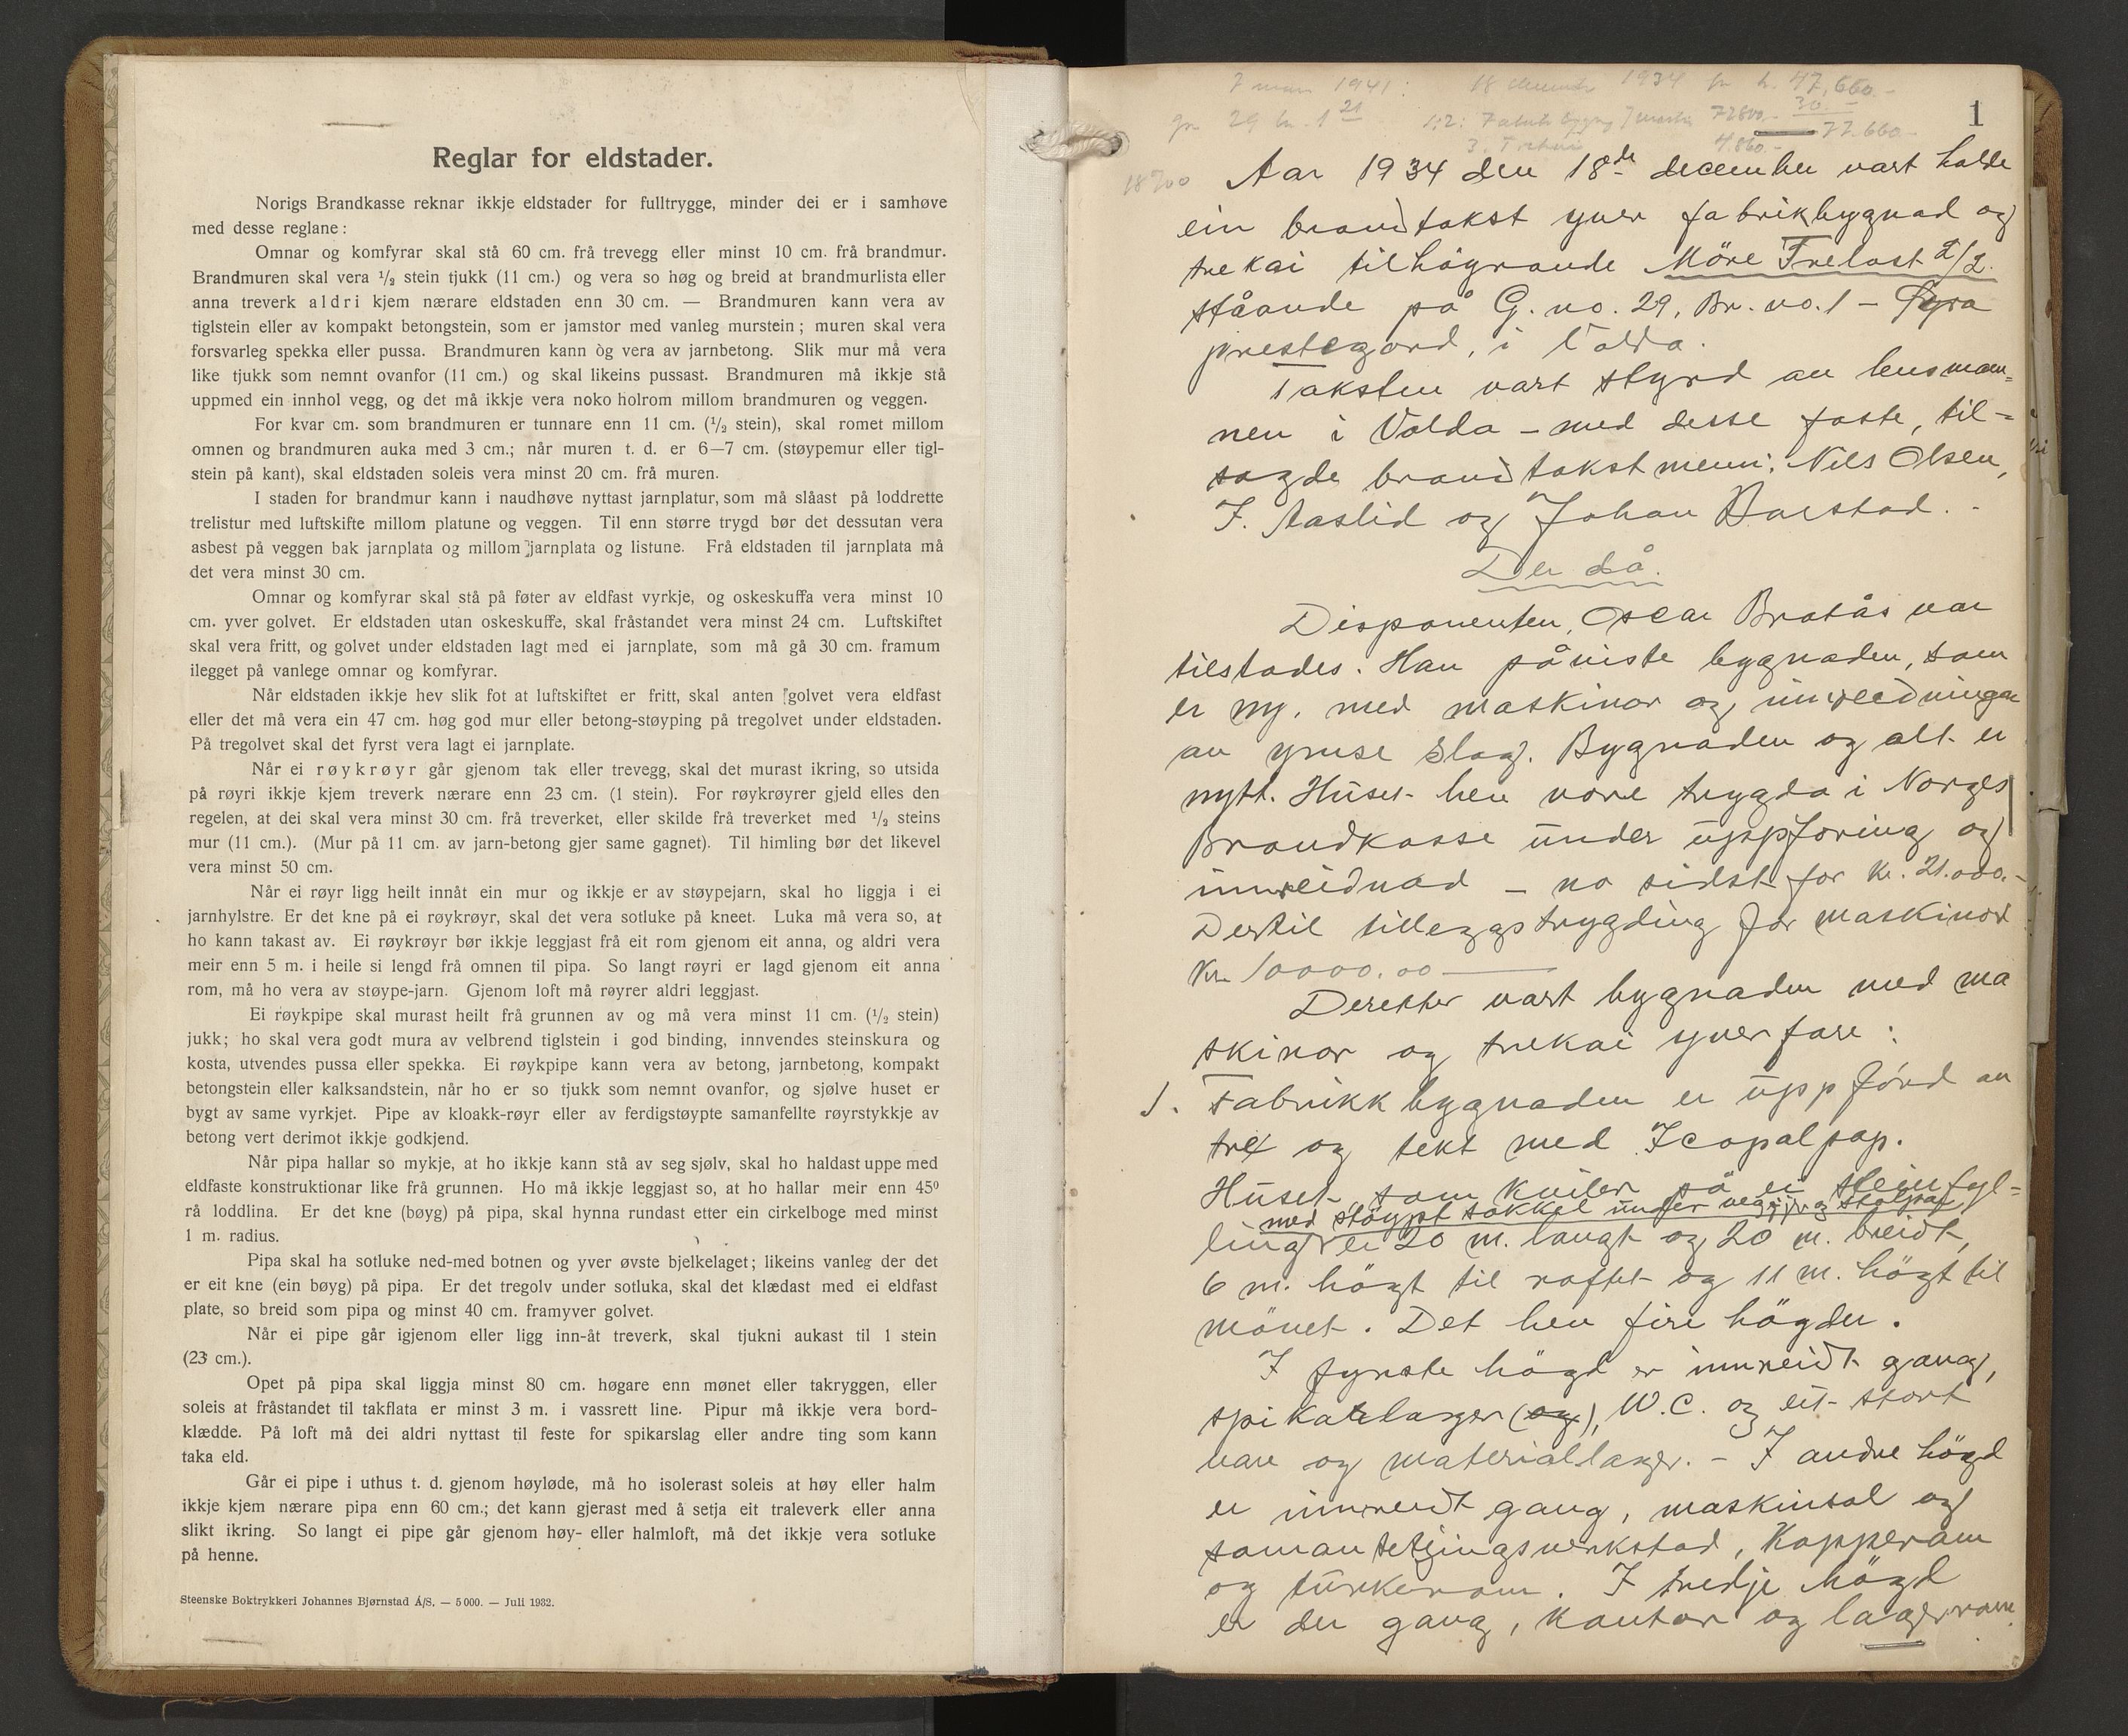 Reglar for eldstader.
Norigs Brandkasse reknar ikkje eldstader for fulltrygge, minder dei er i samhøve
med desse reglane:
Omnar og komfyrar skal stå 60 cm. frå trevegg eller minst 10 cm. frå brandmur.
Brandmuren skal vera ¹/₂ stein tjukk (11 cm.) og vera so høg og breid at brandmurlista eller
anna treverk aldri kjem nærare eldstaden enn 30 cm. — Brandmuren kann vera av
tiglstein eller av kompakt betongstein, som er jamstor med vanleg murstein; muren skal vera
forsvarleg spekka eller pussa. Brandmuren kann òg vera av jarnbetong. Slik mur må vera
like tjukk som nemnt ovanfor (11 cm.) og skal likeins pussast. Brandmuren må ikkje stå
uppmed ein innhol vegg, og det må ikkje vera noko holrom millom brandmuren og veggen.
For kvar cm. som brandmuren er tunnare enn 11 cm. (¹/₂ stein), skal romet millom
omnen og brandmuren auka med 3 cm.; når muren t. d. er 6—7 cm. (støypemur eller tigl-
stein på kant), skal eldstaden soleis vera minst 20 cm. frå muren.
I staden for brandmur kann i naudhøve nyttast jarnplatur, som må slåast på loddrette
trelistur med luftskifte millom platune og veggen. Til enn større trygd bør det dessutan vera
asbest på veggen bak jarnplata og millom jarnplata og listune. Frå eldstaden til jarnplata må
det vera minst 30 cm.
Omnar og komfyrar skal stå på føter av eldfast vyrkje, og oskeskuffa vera minst 10
cm. yver golvet. Er eldstaden utan oskeskuffe, skal fråstandet vera minst 24 cm. Luftskiftet
skal vera fritt, og golvet under eldstaden lagt med ei jarnplate, som må gå 30 cm. framum
ilegget på vanlege omnar og komfyrar.
Når eldstaden ikkje hev slik fot at luftskiftet er fritt, skal anten golvet vera eldfast
eller det må vera ein 47 cm. høg god mur eller betong-støyping på tregolvet under eldstaden.
På tregolvet skal det fyrst vera lagt ei jarnplate.
Når ei røykrøyr går gjenom tak eller trevegg, skal det murast ikring, so utsida
på røyri ikkje kjem treverk nærare enn 23 cm. (1 stein). For røykrøyrer gjeld elles den
regelen, at dei skal vera minst 30 cm. frå treverket, eller skilde frå treverket med ¹/₂ steins
mur (11 cm.). (Mur på 11 cm. av jarn-betong gjer same gagnet). Til himling bør det likevel
vera minst 50 cm.
Når ei røyr ligg heilt innåt ein mur og ikkje er av støypejarn, skal ho liggja i ei
jarnhylstre. Er det kne på ei røykrøyr, skal det vera sotluke på kneet. Luka må vera so, at
ho kann takast av. Ei røykrøyr bør ikkje leggjast frå eit rom gjenom eit anna, og aldri vera
meir enn 5 m. i heile si lengd frå omnen til pipa. So langt røyri er lagd gjenom eit anna
rom, må ho vera av støype-jarn. Gjenom loft må røyrer aldri leggjast.
Ei røykpipe skal murast heilt frå grunnen av og må vera minst 11 cm. (¹/₂ stein)
jukk; ho skal vera godt mura av velbrend tiglstein i god binding, innvendes steinskura og
kosta, utvendes pussa eller spekka. Ei røykpipe kann vera av betong, jarnbetong, kompakt
betongstein eller kalksandstein, når ho er so tjukk som nemnt ovanfor, og sjølve huset er
bygt av same vyrkjet. Pipe av kloakk-røyr eller av ferdigstøypte samanfellte røyrstykkje av
betong vert derimot ikkje godkjend.
Når pipa hallar so mykje, at ho ikkje kann stå av seg sjølv, skal ho haldast uppe med
eldfaste konstruktionar like frå grunnen. Ho må ikkje leggjast so, at ho hallar meir enn 45⁰
rå loddlina. Er det kne (bøyg) på pipa, skal hynna rundast etter ein cirkelboge med minst
1 m. radius.
Pipa skal ha sotluke ned-med botnen og yver øvste bjelkelaget; likeins vanleg der det
er eit kne (ein bøyg) på pipa. Er det tregolv under sotluka, skal det klædast med ei eldfast
plate, so breid som pipa og minst 40 cm. framyver golvet.
Når ei pipe går igjenom eller ligg inn-åt treverk, skal tjukni aukast til 1 stein
(23 cm.).
Opet på pipa skal liggja minst 80 cm. høgare enn mønet eller takryggen, eller
soleis at fråstandet til takflata er minst 3 m. i vassrett line. Pipur må ikkje vera bord-
klædde. På loft må dei aldri nyttast til feste for spikarslag eller andre ting som kann
taka eld.
Går ei pipe i uthus t. d. gjenom høyløde, må ho isolerast soleis at høy eller halm
ikkje kjem nærare pipa enn 60 cm.; det kann gjerast med å setja eit traleverk eller anna
slikt ikring. So langt ei pipe går gjenom høy- eller halmloft, må det ikkje vera sotluke
på henne.
Steenske Boktrykkeri Johannes Bjørnstad A/S. — 5 000. — Juli 1932.
7 mars 1941: 18 1934 kr. 47,660.-
gr 29 br. 1 21 1;2: 72800,- 30.-
3. 4.860.- 77.660-
1
18700
Aar 1934 den 18de december vart halde
ein brandtakst yver fabrikbygnad og
trekai tilhøyrande Möre Trelast A/L.
ståande på G. no. 29, Br. no. 1 -
prestegard, i Volda.
Taksten vart styrd av lensman=
nen i Volda - med desse faste, til-
sagde brandtakstmenn: Nils Olsen,
I. Aaslid og Johan Barstad.
Der då.
Disponenten, Oscar Bratås var
tilstades. Han påviste bygnaden, som
er ny, med maskinor og innreidningar
av ymse slag. Bygnaden og alt er
nytt. Huset hev vore trygda i Norges
Brandkasse under uppføring og
innreidnad - no sidst for kr. 21.000.-
Dertil tilleggstrygding for maskinor
kr. 10000.00
Deretter vart bygnaden med ma
skinor og trekai yverfare:
1. Fabrikkbygnaden er uppførd av
tre og tekt med Icopalpap.
Huset, som kviler på ei steinfyl=
med støypt sokkel under veggjir og stolpar
ling er 20 m. langt og 20 m. breidt,
6 m. högt til raftet og 11 m. högt til
mönet. Det hev fire högder.
I fyrste högd er innreidt gang,
spikarlager (og), W.C. og eit stort
vare og materiallager. - I andre högd
er innreidt gang, maskinsal og
samansetjingsverkstad, Kapperom
og turkerom. I tredje högd
er der gang, kontor og lagerrom